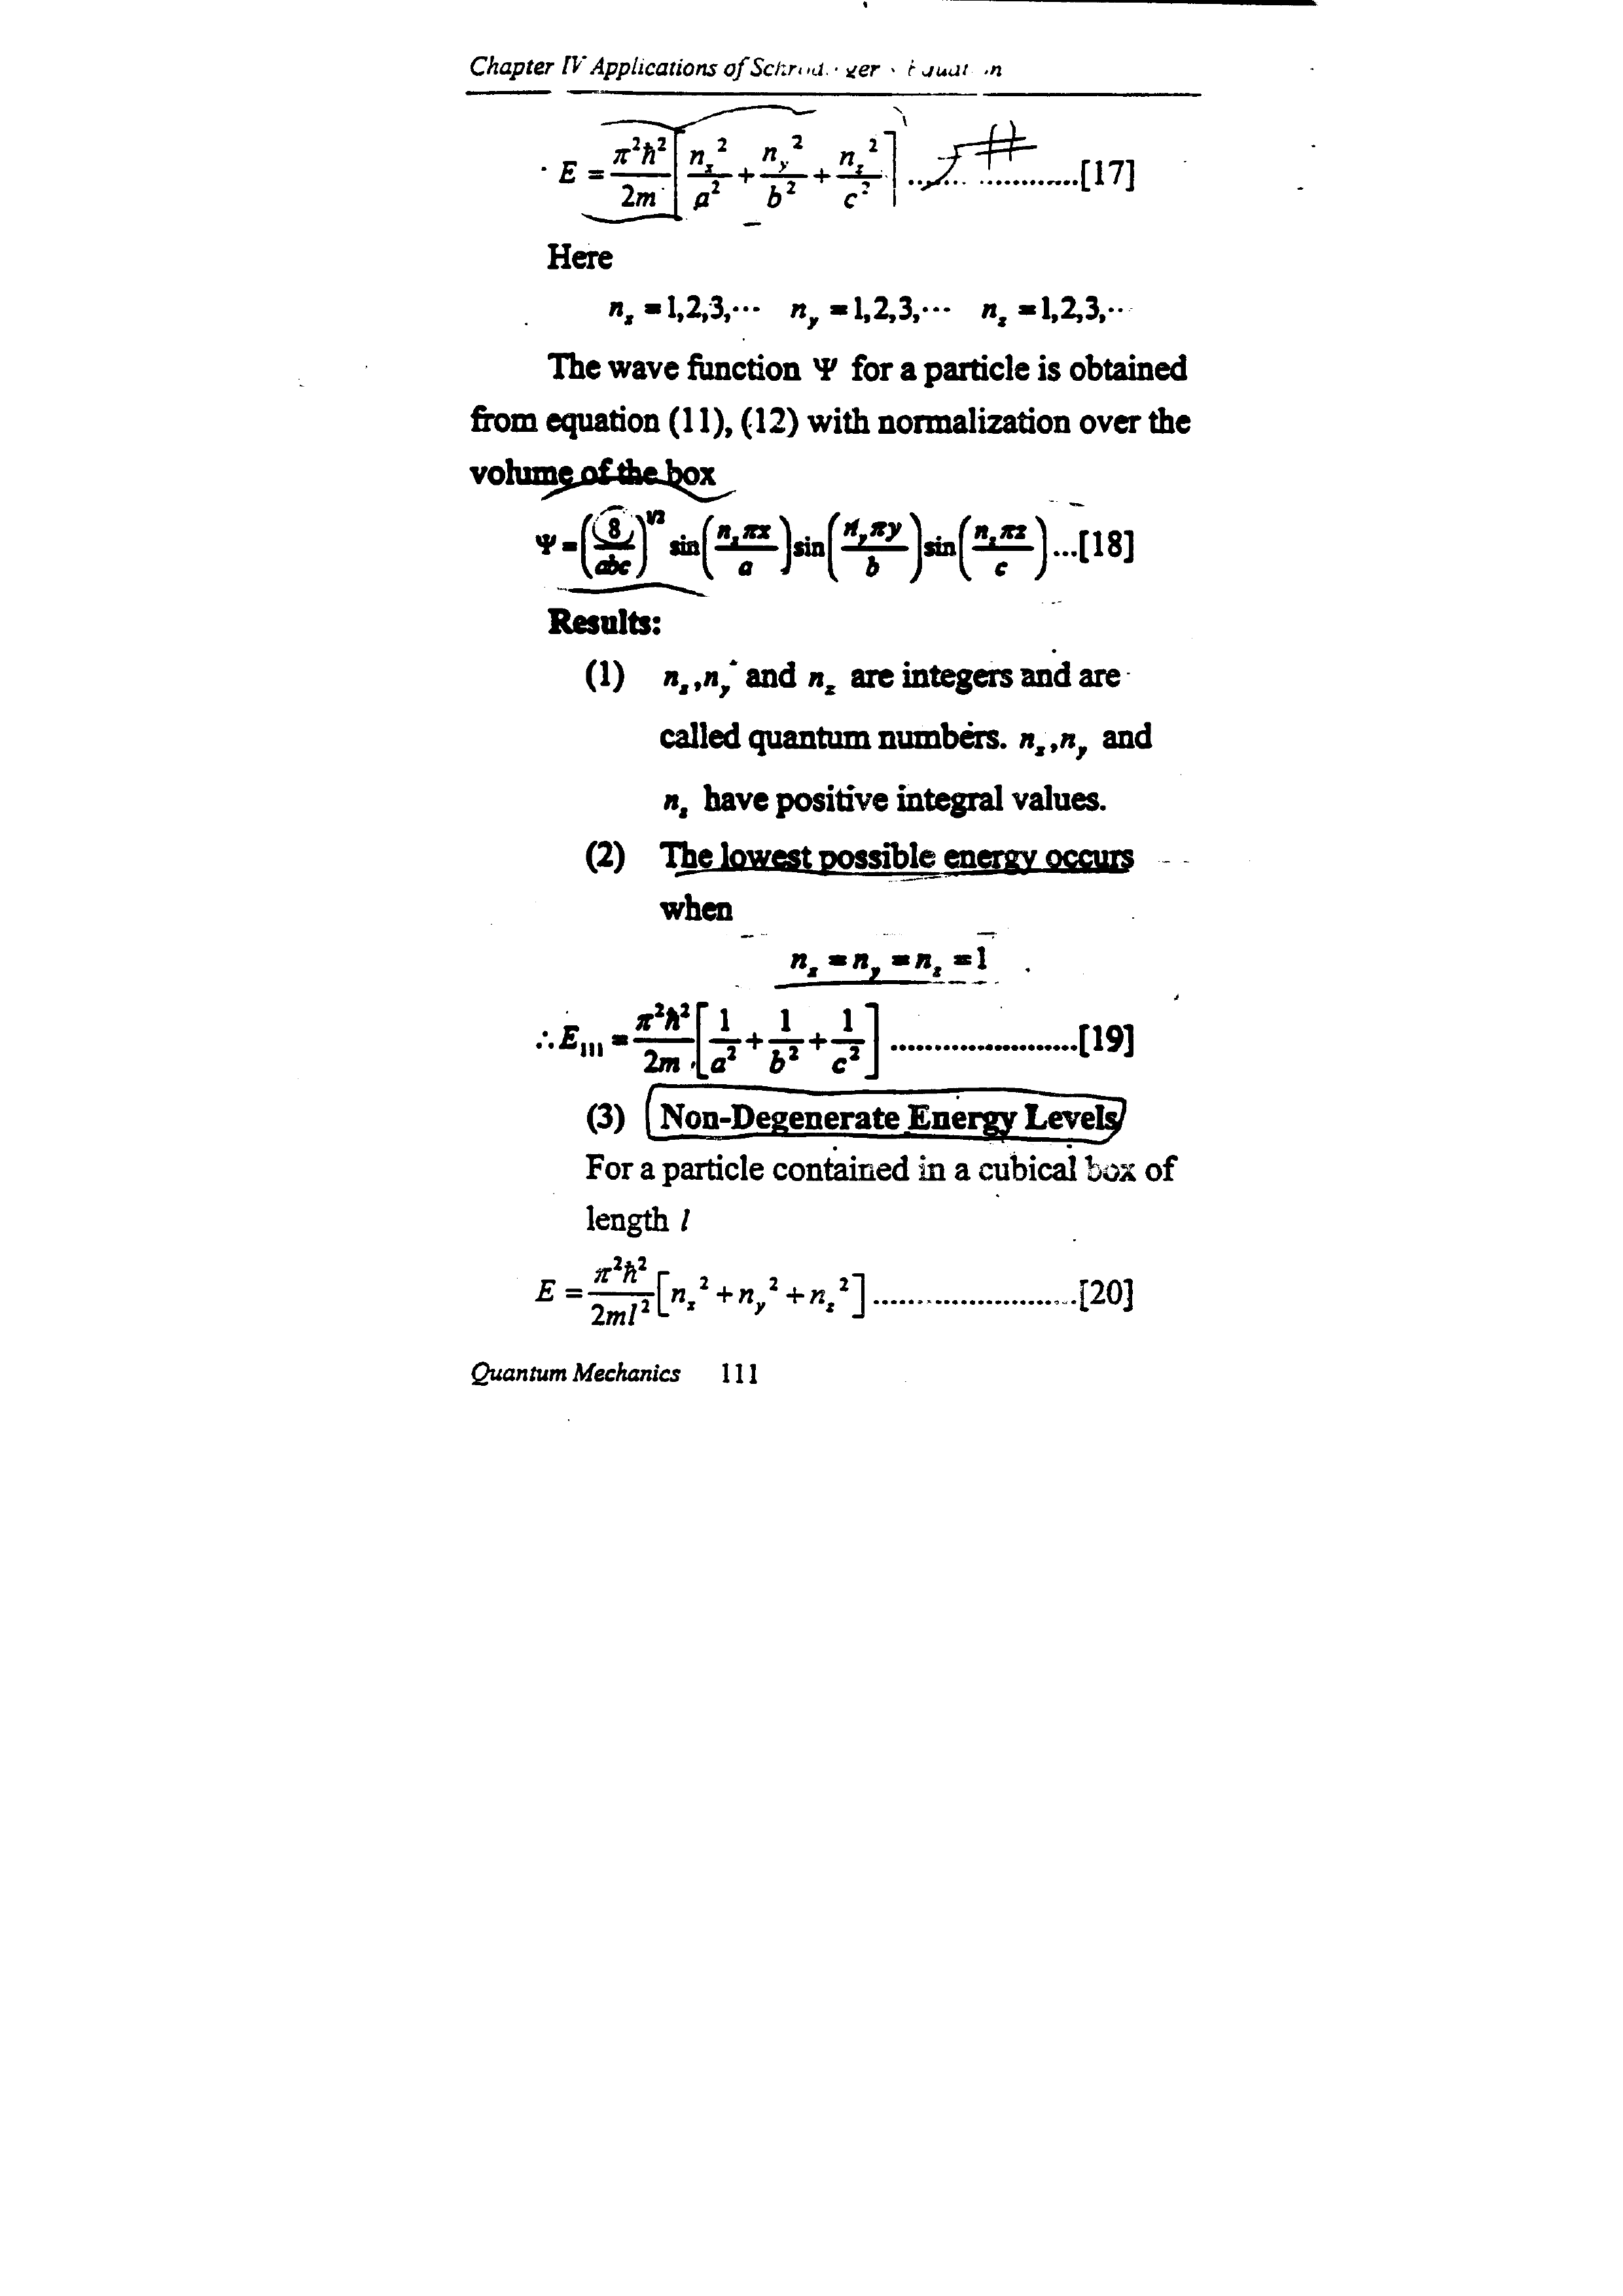 Chapter IV Applications of
E = π²ħ²/2m [n_x²/a² + n_y²/b² + n_z²/c²] ..................[17]
Here
n_x = 1,2,3,⋯ n_y = 1,2,3,⋯ n_z = 1,2,3,⋯
The wave function Ψ for a particle is obtained
from equation (11), (12) with normalization over the
volume of the box
Ψ = (8/abc)^1/2 sin(n_xπx/a) sin(n_yπy/b) sin(n_zπz/c) ...[18]
Results:
(1) n_x,n_y and n_z are integers and are
called quantum numbers. n_x,n_y and
n_z have positive integral values.
(2) The lowest possible energy occurs
when
n_x = n_y = n_z = 1
∴ E_111 = π²ħ²/2m [1/a² + 1/b² + 1/c²] ........................[19]
(3) Non-Degenerate Energy Levels
For a particle contained in a cubical box of
length l
E = π²ħ²/2ml² [n_x² + n_y² + n_z²] ........................[20]
Quantum Mechanics 111